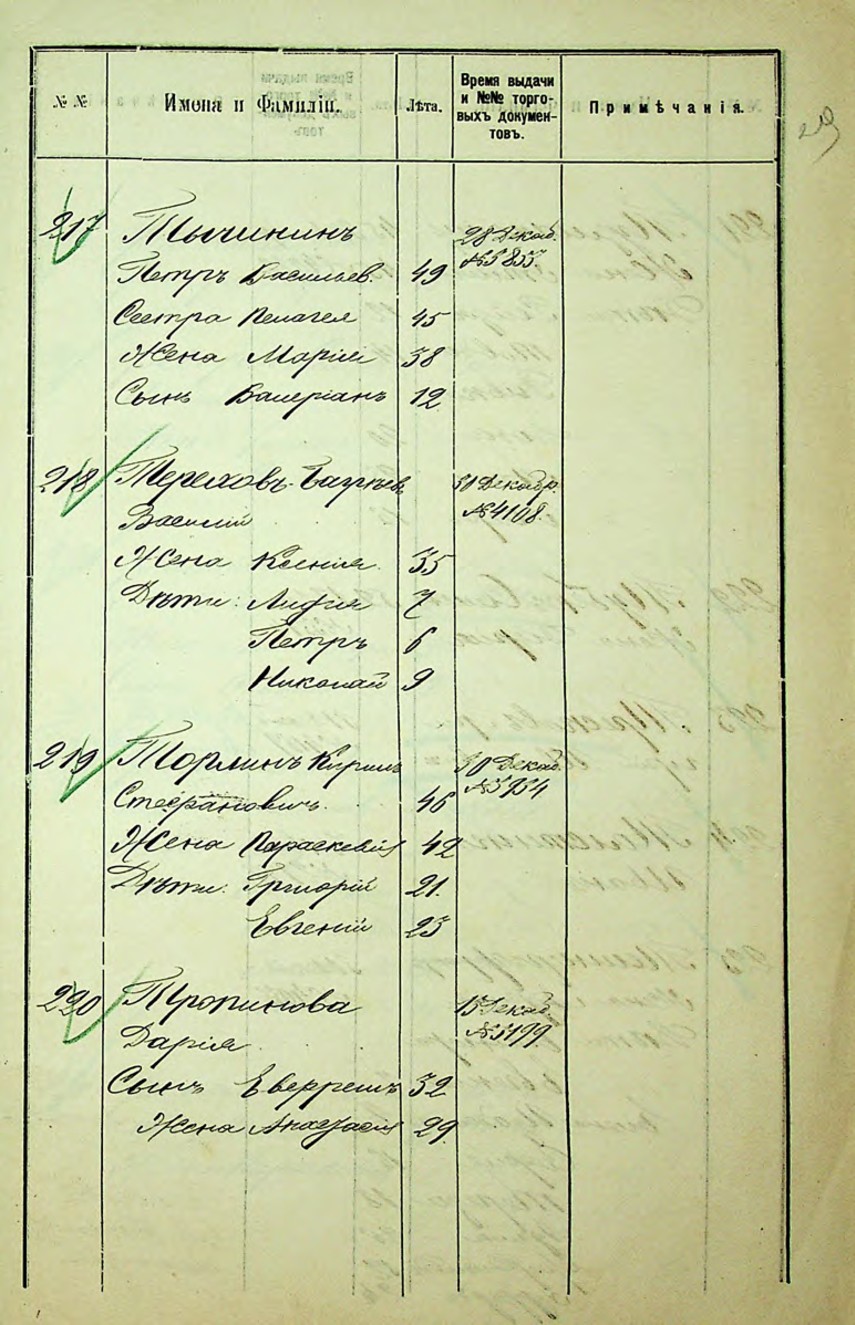 № № Имена и Фамиліи. Лѣта. Время выдачи и №№ торго-выхъ докумен-товъ. Примѣчанія.
217 Тычининъ 28 Декаб.
Петръ Васильев. 49 №5855
Сестра Пелагея 45
Жена Марія 38
Сынъ Валеріанъ 12
218 Тереховъ- 30 Декабр.
Василій №4108
Жена Ксенія 35
Дѣти: Лидія 7
Петръ 6
Николай 9
219 Торлинъ Кирилъ 30 Декаб.
Стефановичъ 46 №5954
Жена Параскевія 42
Дѣти: Григорій 21
Евгеній 23
220 Тропинова 15 Декаб.
Дарія №5199
Сынъ 32
Жена Анастасія 29